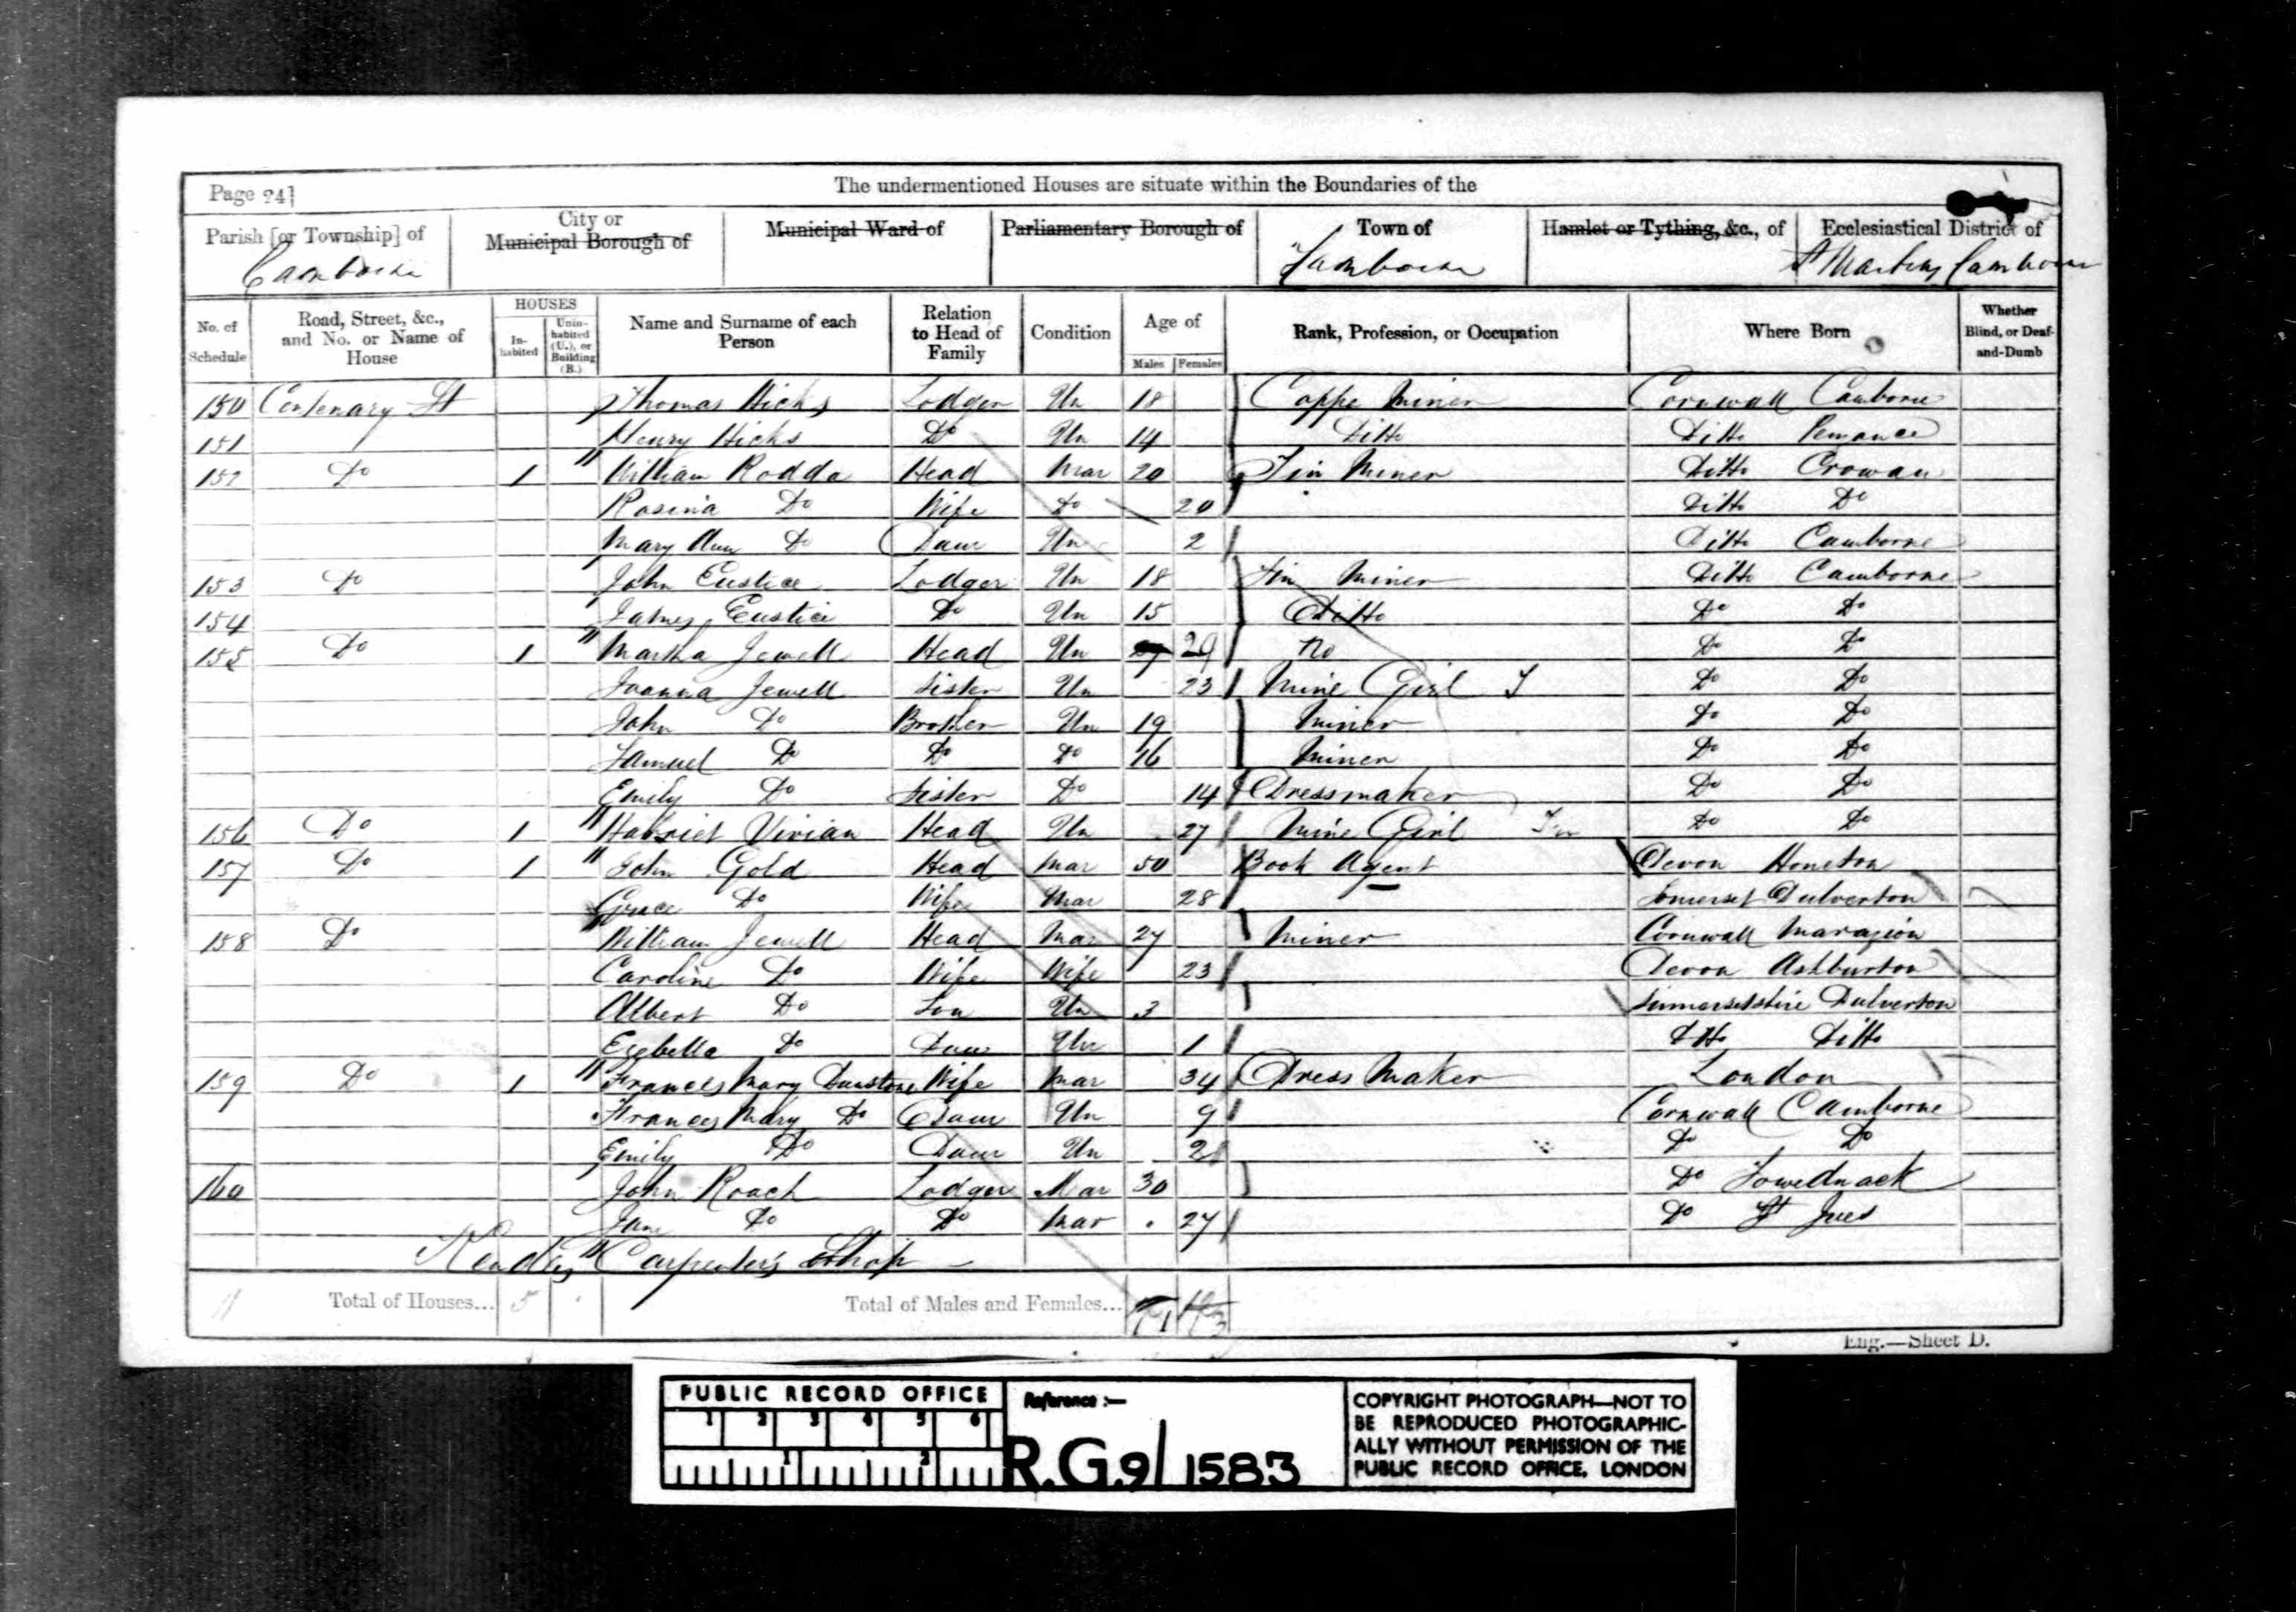 Page 24]
The undermentioned Houses are situate within the Boundaries of the
Parish [or Township] of City or Municipal Borough of Municipal Ward of Parliamentary Borough of Town of Hamlet or Tything, &c., of Ecclesiastical District of
Camborne Camborne St Martins Camborne
No. of Schedule Road, Street, &c., and No. or Name of House HOUSES In-habited Unin-habited (U.), or Building (B.) Name and Surname of each Person Relation to Head of Family Condition Age of Males Females Rank, Profession, or Occupation Where Born Whether Blind, or Deaf-and-Dumb
150 Centenary St Thomas Hicks Lodger Un 18 Coppe Miner Cornwall Camborne
151 Henry Hicks Do Un 14 Ditto Ditto Penzance
152 Do 1 William Rodda Head Mar 20 Tin Miner Ditto Crowan
Rosina Do Wife Do 20 Ditto Do
Mary Ann Do Daur Un 2 Ditto Camborne
153 Do John Eustice Lodger Un 18 Tin Miner Ditto Camborne
154 James Eustice Do Un 15 Ditto Do Do
155 Do 1 Martha Jewell Head Un 29 No Do Do
Joanna Jewell Sister Un 23 Mine Girl T Do Do
John Do Brother Un 19 Miner Do Do
Samuel Do Do Do 16 Miner Do Do
Emily Do Sister Do 14 Dressmaker Do Do
156 Do 1 Harriet Vivian Head Un 27 Mine Girl Do Do
157 Do 1 John Gold Head Mar 50 Book Agent Devon Honeton
Grace Do Wife Mar 28 Somerset Dulverton
158 Do William Jewell Head Mar 27 Miner Cornwall Marazion
Caroline Do Wife Wife 23 Devon Ashburton
Albert Do Son Un 3 Sumersetshire Dulverton
Esebella Do Daur Un 1 Ditto Ditto
159 Do 1 Frances Mary Dunstone Wife Mar 34 Dress Maker London
Frances Mary Do Daur Un 9 Cornwall Camborne
Emily Do Daur Un 2 Do Do
160 John Roach Lodger Mar 30 Do Towednack
Jane Do Do Mar 27 Do St Ives
Carpenter's Shop
Total of Houses... 5 Total of Males and Females...
Eng.—Sheet D.
PUBLIC RECORD OFFICE
1 2 3 4 5 6
1 2
Reference :—
R.G.9/1583
COPYRIGHT PHOTOGRAPH—NOT TO
BE REPRODUCED PHOTOGRAPHIC-
ALLY WITHOUT PERMISSION OF THE
PUBLIC RECORD OFFICE, LONDON